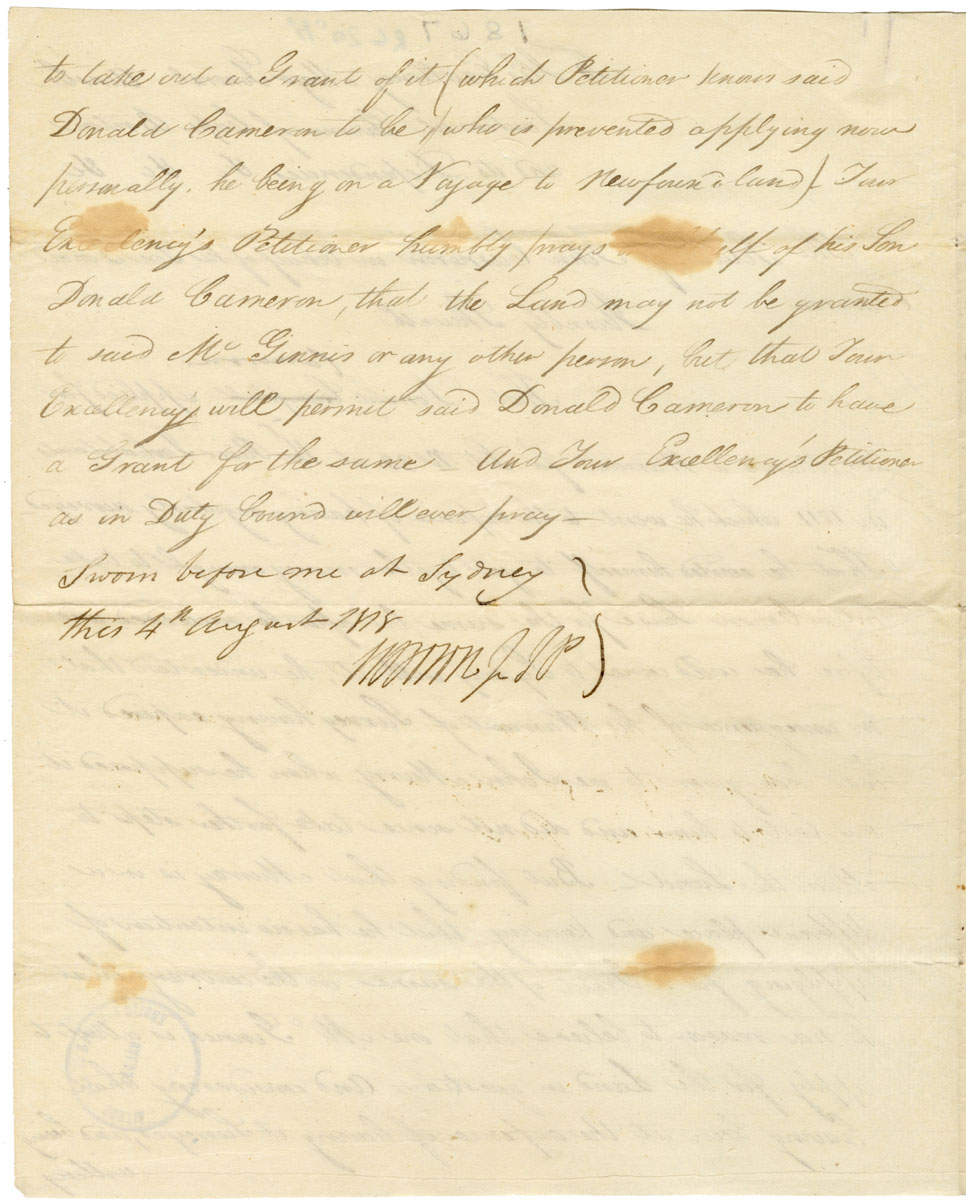 to take out a Grant of it (which Petitioner knows said
Donald Cameron to be, (who is prevented applying now
personally, he being on a Voyage to Newfoundland) Your
Excellency's Petitioner humbly prays half of his Son
Donald Cameron, that the Land may not be granted
to said Mc Ginnis or any other person, but that Your
Excellency will permit said Donald Cameron to have
a Grant for the same And Your Excellency's Petitioner
as in Duty bound will ever pray—
Sworn before me at Sydney }
this 4th August 1818
JP